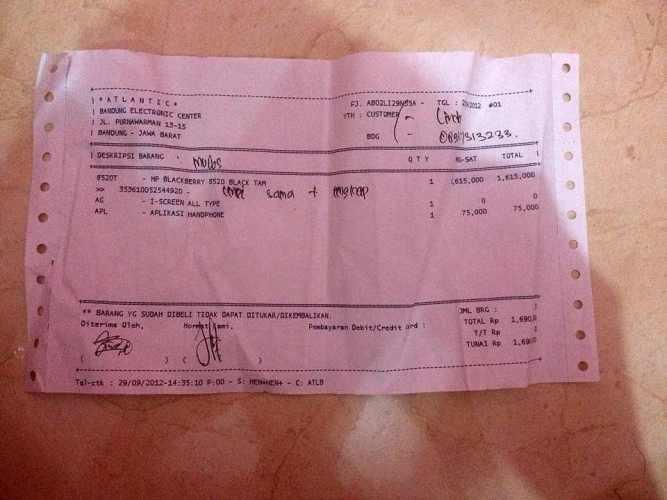 * A T L A N T I C *
FJ. AB02LI29N05A - TGL : 29/2012 #01
BANDUNG ELECTRONIC CENTER
YTH : CUSTOMER
JL. PURNAWARMAN 13-15
BANDUNG - JAWA BARAT
BDG -
DESKRIPSI BARANG Q T Y H-SAT TOTAL
8520T - HP BLACKBERRY 8520 BLACK TAM 1 1,615,000 1,615,000
>> 353610052544920 -
sama +
AG - I-SCREEN ALL TYPE 1 0 0
APL - APLIKASI HANDPHONE 1 75,000 75,000
** BARANG YG SUDAH DIBELI TIDAK DAPAT DITUKAR/DIKEMBALIKAN.
JML BRG :
Diterima Oleh, Hormat Kami, Pembayaran Debit/Credit Card :
TOTAL Rp 1,690,0
T/T Rp
TUNAI Rp 1,690,0
( ) ( )
Tgl-ctk : 29/09/2012-14:35:10 P:00 - S: HEN+HEN+ - C: ATLB